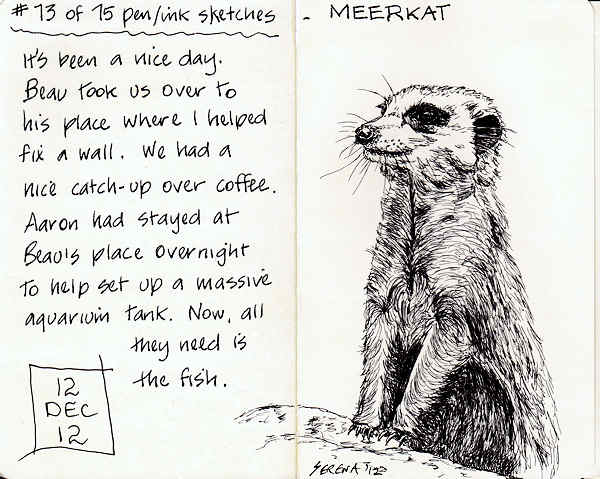 #13 of 15 pen/ink sketches - MEERKAT
It's been a nice day.
Beau took us over to
his place where I helped
fix a wall. We had a
nice catch-up over coffee.
Aaron had stayed at
Beau's place overnight
to help set up a massive
aquarium tank. Now, all
they need is
the fish.
12
DEC
12
SERENA '12